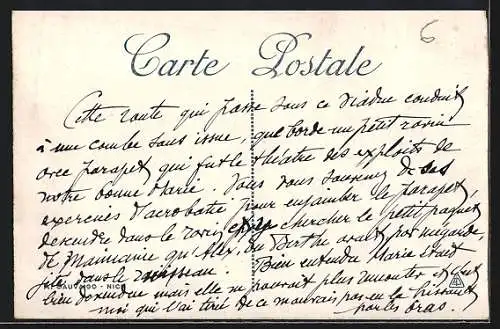 6
Carte Postale
Cette route qui passe sous ce viaduc conduit
à une combe sans issue, que borde un petit ravin
avec parapet qui fut le théâtre des exploits de
notre bonne Marie. Vous vous souvenez de ses
exercices d'acrobatie pour enjamber le parapet,
descendre dans le ravin et y chercher le petit paquet
de Maimaine qu'Alex, ou Berthe avait par mégarde,
jeté dans le ruisseau. Bien entendu Marie était
bien descendue mais elle ne pouvait plus remonter et c'est
moi qui l'ai tiré de ce mauvais pas en la hissant
par les bras.
GAUVAGO - NICE